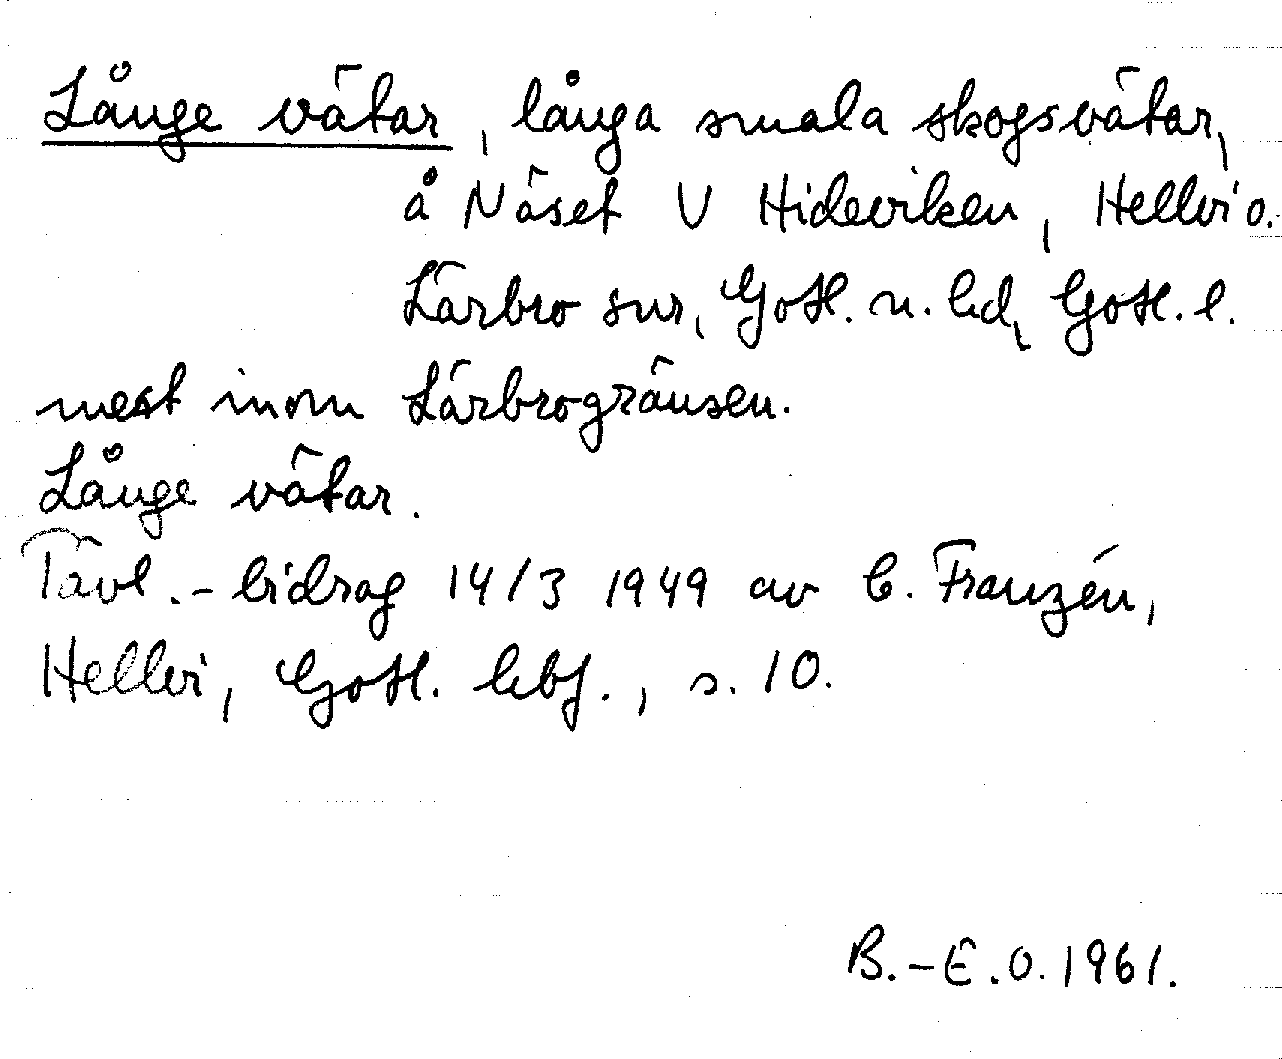 Långe vätar, långa smala skogsvätar,
å Näset V Hideviken, Hellvi o.
Lärbro snr, Gotl. n. hd, Gotl. l.
mest inom Lärbrogränsen.
Långe vätar.
Tävl.-bidrag 14/3 1949 av C. Franzén,
Hellvi, Gotl. hbf., s. 10.
B.-E.O. 1961.